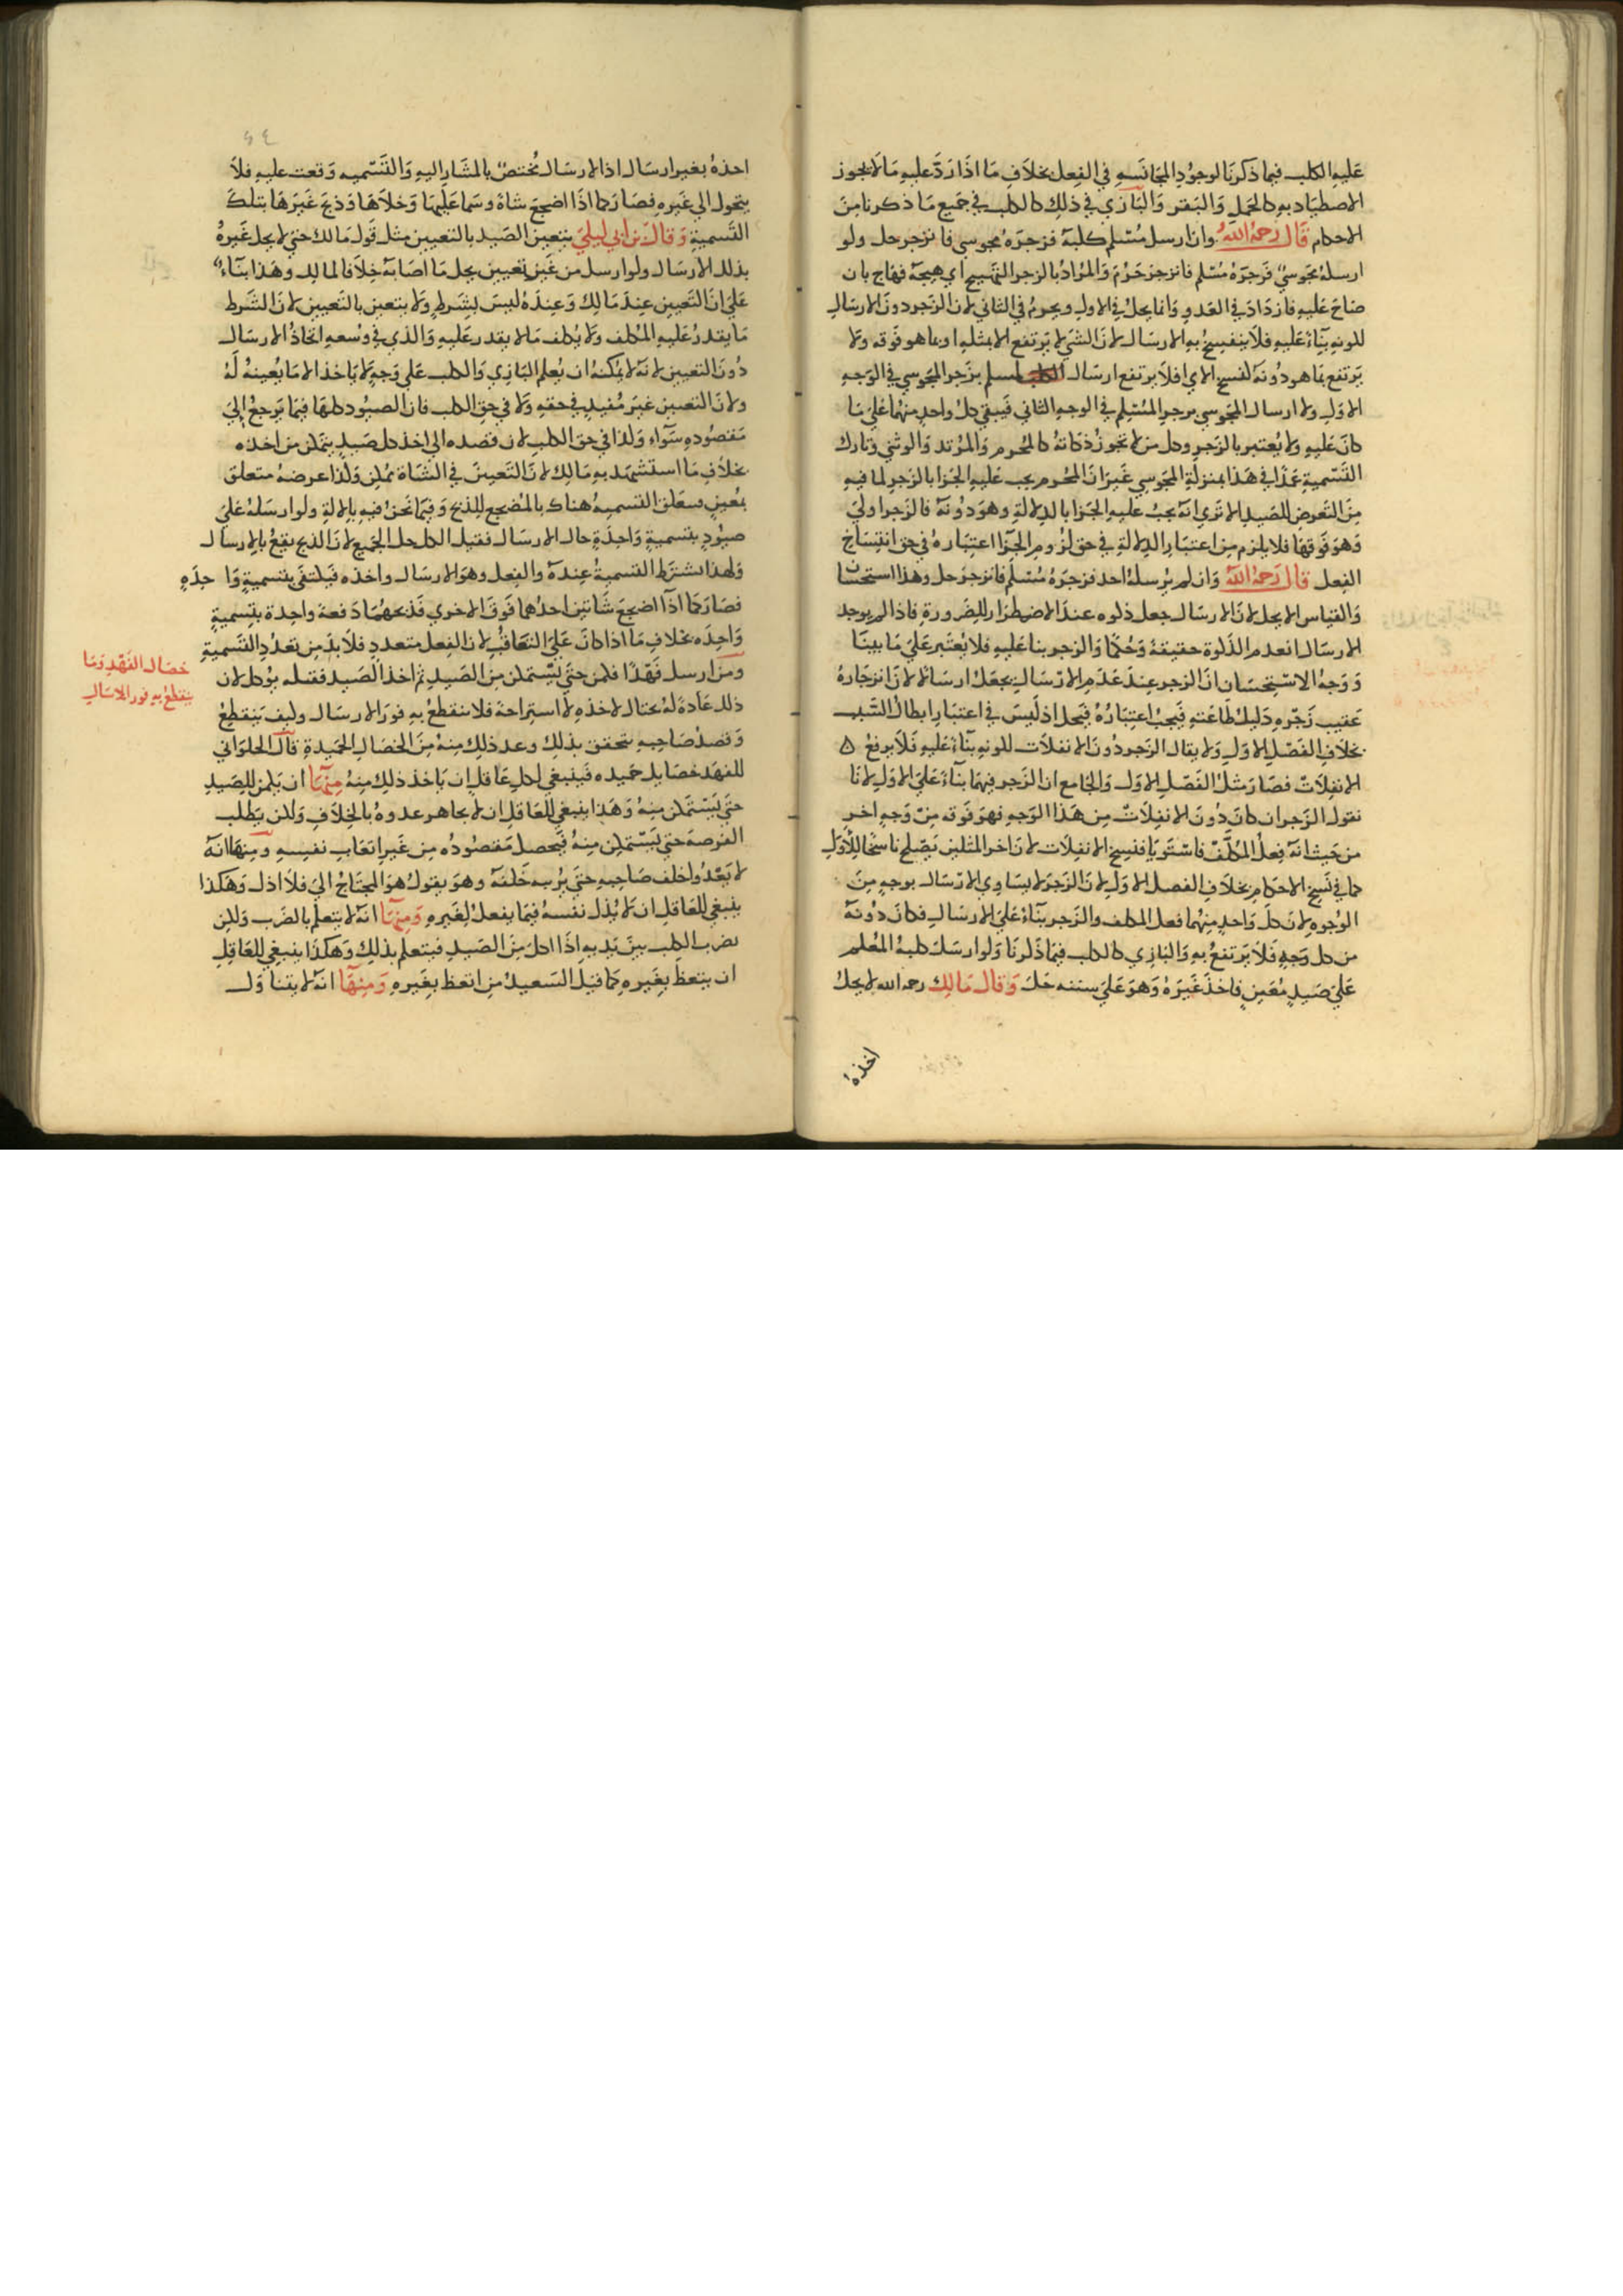 عليه الكلب فيما ذكرنا لوجود المجانسه في الفعل بخلاف ما اذا رد عليه ما لا يجوز
الاصطياد به كالجمل والبقر والبازي في ذلك كالكلب في جميع ما ذكرنا من
الاحكام قال رحمه الله وان ارسل مسلم كلبه فزجره مجوسي فانزجر حل ولو
ارسله مجوسي فزجره مسلم فانزجر حرم والمراد بالزجر التهييج اي هيجه فهاج بان
صاح عليه فازداد في العدو وانما يحل في الاول ويحرم في الثاني لان الزجر دون الارسال
لكونه بناء عليه فلا ينفسخ به الارسال لان الشي لا يرتفع الا بمثله او بما هو فوقه ولا
يرتفع بما هو دونه كنسخ الاي فلا يرتفع ارسال المسلم بزجر المجوسي في الوجه
الاول ولا ارسال المجوسي بزجر المسلم في الوجه الثاني فيبقي كل واحد منهما علي ما
كان عليه ولا يعتبر بالزجر وكل من لا تجوز ذكاته كالمحرم والمرتد والوثني وتارك
التسمية عمدا في هذا بمنزلة المجوسي غير ان المحرم يجب عليه الجزا بالزجر لما فيه
من التعرض للصيد الا تري انه يجب عليه الجزا بالدلالة وهو دونه فالزجر اولي
وهو فوقها فلا يلزم من اعتبار الدلالة في حق لزوم الجزا اعتباره في حق انتساخ
الفعل قال رحمه الله وان لم يرسله احد فزجره مسلم فانزجر حل وهذا استحسان
والقياس الا يحل لان الارسال جعل ذكوه عند الاضطرار للضرورة فاذا لم يوجد
الارسال انعدم الذكوة حقيقة وحكما والزجر بنا عليه فلا يعتبر علي ما بينا
ووجه الاستحسان ان الزجر عند عدم الارسال يجعل ارسالا لان انزجاره
عقيب زجره دليل طاعته فيجب اعتباره فيحل اذ ليس في اعتباره ابطال السبب
بخلاف الفصل الاول ولا يقال الزجر دون الانفلات لكونه بناء عليه فلا يرفع
الانفلات فصار مثل الفصل الاول والجامع ان الزجر فيهما بناء علي الاول لانا
نقول الزجر ان كان دون الانفلات من هذا الوجه فهو فوقه من وجه اخر
من حيث انه فعل المكلف فاستويا فنسخ الانفلات لان اخر المثلين يصلح ناسخا للأول
كما في نسخ الاحكام بخلاف الفصل الاول لان الزجر لا يساوي الارسال بوجه من
الوجوه لان كل واحد منهما فعل المكلف والزجر بناء علي الارسال فكان دونه
من كل وجه فلا يرتفع به والبازي كالكلب فيما ذكرنا ولو ارسل كلبه المعلم
علي صيد معين فاخذ غيره وهو علي سننه حل وقال مالك رحمه الله لا يحل
اخذه
احذه بغير ارسال اذ الارسال مختص بالمشار اليه والتسميه وقعت عليه فلا
يتحول الي غيره فصار كما اذا اضجع شاة وسما عليها وخلاها وذبح غيرها بتلك
التسمية وقال بن ابي ليلي يتعين الصيد بالتعيين مثل قول مالك حتي لا يحل غيره
بذلك الارسال ولو ارسل من غير تعيين يحل ما اصابه خلافا لمالك وهذا بناء
علي ان التعيين عند مالك وعنده ليس بشرط ولا يتعين بالتعيين لان الشرط
ما يقدر عليه المكلف ولا يكلف ما لا يقدر عليه والذي في وسعه اتخاذ الارسال
دون التعيين لانه لا يمكنه ان يعلم البازي والكلب علي وجه لا ياخذ الا ما يعينه له
ولان التعيين غير مفيد في حقه ولا في حق الكلب فان الصيود كلها فيما يرجع إلي
مقصوده سواء وكذا في حق الكلب لان قصده الي اخذ كل صيد يتمكن من اخذه
بخلاف ما استشهد به مالك لان التعيين في الشاة ممكن وكذا عرضه متعلق
بمعين وتعلق التسميه هناك بالمضجع للذبح وفيما نحن فيه بالالة ولو ارسله علي
صيود بتسمية واحدة حال الارسال فقتل الكل حل الجميع لان الذبح يقع بالارسال
ولهذا تشترط التسمية عنده والفعل وهو الارسال واخذه فيكتفي بتسمية واحده
فصار كما اذا اضجع شاتين احدهما فوق الاخري فذبحهما دفعة واحدة بتسمية
واحده بخلاف ما اذا كان علي التعاقب لان الفعل متعدد فلا بد من تعدد التسمية
ومن ارسل فهدا فكمن حتي يتمكن من الصيد ثم اخذ الصيد فقتله يوكل لان
ذلك عادة له يحتال لاخذه لا استراحة فلا ينقطع به فور الارسال وكيف ينقطع
وقصد صاحبه يتحقق بذلك وعد ذلك منه من الخصال الحميدة قال الحلواني
للفهد خصايل حميده فينبغي لكل عاقل ان ياخذ ذلك منه منها ان يكمن للصيد
حتي يستمكن منه وهذا ينبغي للعاقل ان لا يجاهر عدوه بالخلاف ولكن يطلب
الفرصه حتي يستمكن منه فيحصل مقصوده من غير اتعاب نفسه ومنها انه
لا يعدوا خلف صاحبه حتي يركبه خلفه وهو يقول هو المحتاج الي فلا اذل وهكذا
ينبغي للعاقل ان لا يذل نفسه فيما يفعل لغيره ومنها انه لا يتعلم بالضرب ولكن
يضرب الكلب بين يديه اذا اكل من الصيد فيتعلم بذلك وهكذا ينبغي للعاقل
ان يتعظ بغيره كما قيل السعيد من اتعظ بغيره ومنها انه لا يتناول
خصال الفهد وما
ينقطع به فور الارسال